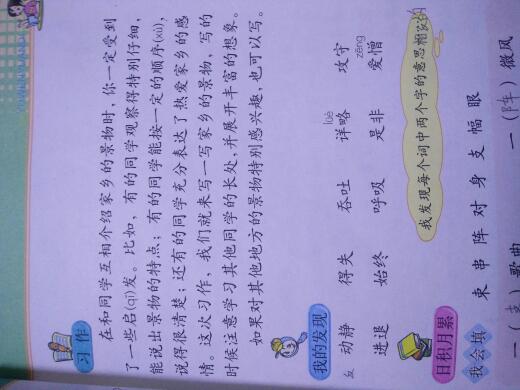 习作
在和同学互相介绍家乡的景物时，你一定受到
了一些启(qǐ)发。比如，有的同学观察得特别仔细，
能说出景物的特点；有的同学能按一定的顺序(xù)，
说得很清楚；还有的同学充分表达了热爱家乡的感
情。这次习作，我们就来写一写家乡的景物，写的
时候注意学习其他同学的长处，并展开丰富的想象。
如果对其他地方的景物特别感兴趣，也可以写。
我的发现
动静 得失 吞吐 详略(lüè) 攻守
进退 始终 呼吸 是非 爱憎(zēng)
我发现每个词中两个字的意思相反。
日积月累
我会填
束 串 阵 对 身 支 幅 眼
一(支)歌曲 一(阵)微风